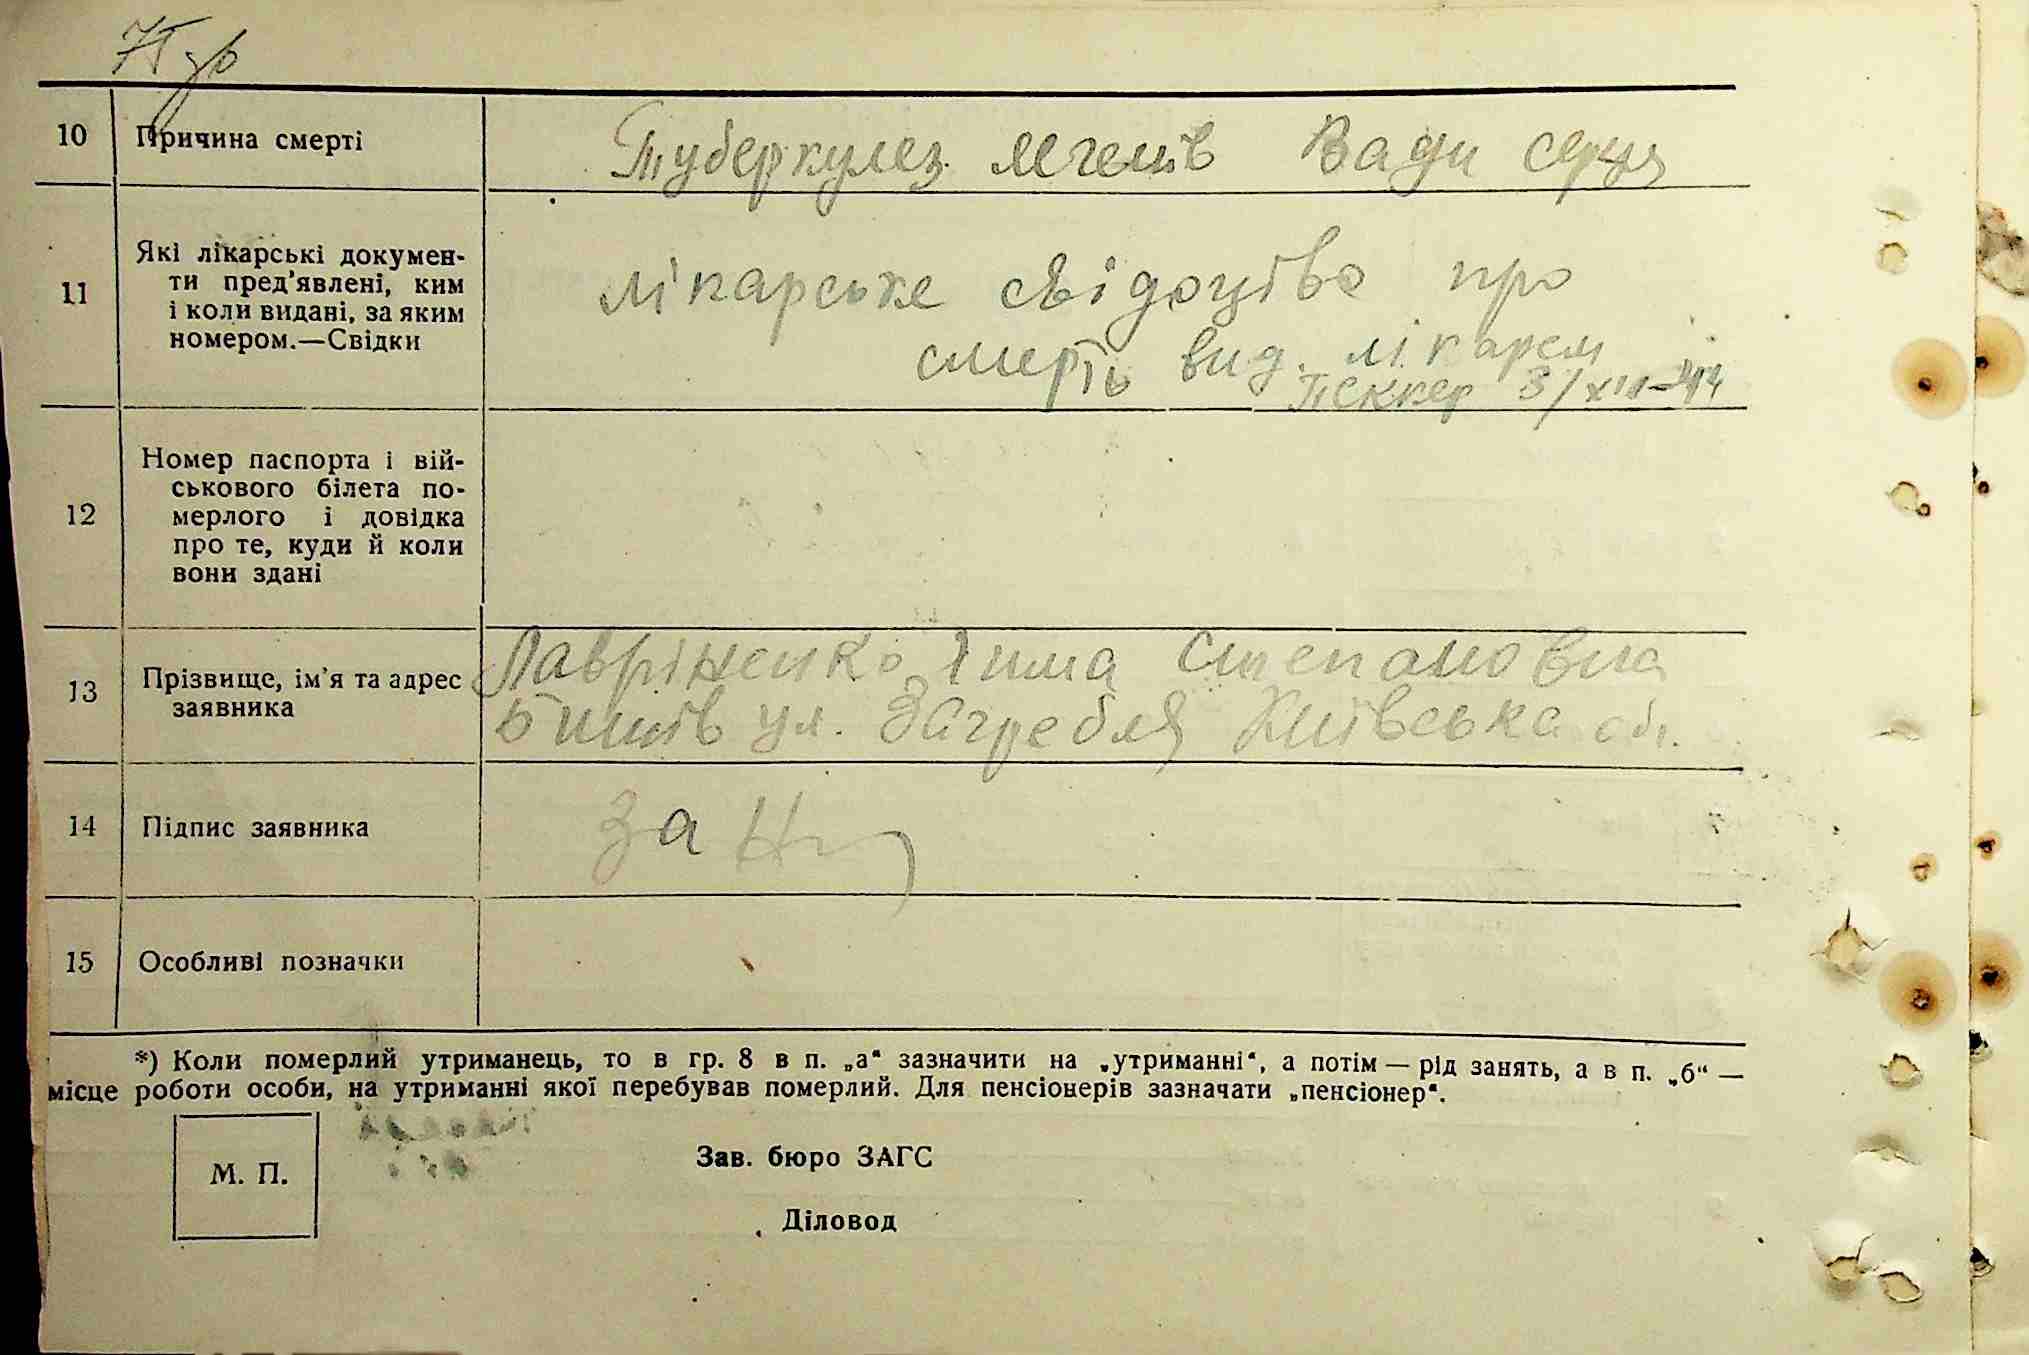 10 Причина смерті Туберкулез легенів Вади серця
11 Які лікарські докумен-
ти пред'явлені, ким
і коли видані, за яким
номером.—Свідки
лікарське свідоцтво про
смерть вид. лікарем
3/XII-44
12 Номер паспорта і вій-
ськового білета по-
мерлого і довідка
про те, куди й коли
вони здані
13 Прізвище, ім'я та адрес
заявника
Лавріненко Степановна
ул. Загребля Київська об.
14 Підпис заявника За
15 Особливі позначки
*) Коли померлий утриманець, то в гр. 8 в п. „а“ зазначити на „утриманні“, а потім — рід занять, а в п. „б“ —
місце роботи особи, на утриманні якої перебував померлий. Для пенсіонерів зазначати „пенсіонер“.
М. П.
Зав. бюро ЗАГС
Діловод